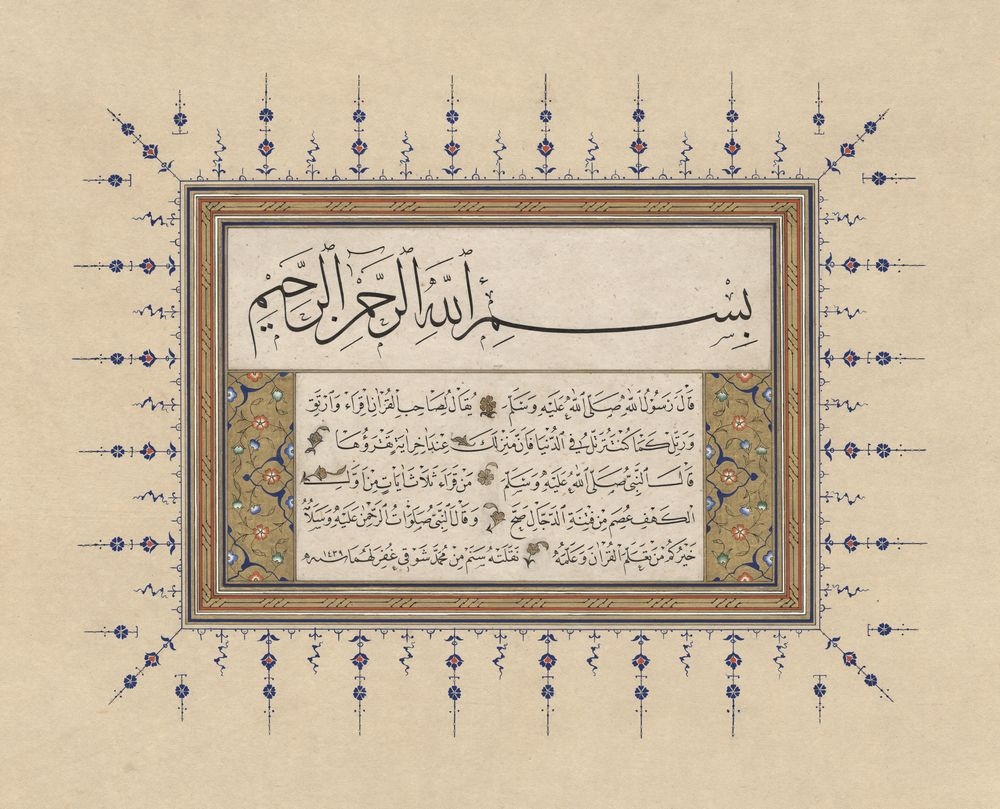 بِسْمِ ٱللَّهِ ٱلرَّحْمٰنِ ٱلرَّحِيمِ
قَالَ رَسُولُ اللهِ صَلَّى اللهُ عَلَيْهِ وَسَلَّمَ يُقَالُ لِصَاحِبِ الْقُرْاٰنِ اِقْرَاءْ وَارْتَقِ
وَرَتِّلْ كَمَا كُنْتَ تُرَتِّلُ فِي الدُّنْيَا فَاِنَّ مَنْزِلَكَ عِنْدَ اٰخِرِ اٰيَةٍ تَقْرَؤُهَا
قَالَ النَّبِيُّ صَلَّى اللهُ عَلَيْهِ وَسَلَّمَ مَنْ قَرَاءَ ثَلَاثَ اٰيَاتٍ مِنْ اَوَّلِ
الْكَهْفِ عُصِمَ مِنْ فِتْنَةِ الدَّجَّالِ صح وَقَالَ النَّبِيُّ صَلَوَاتُ الرَّحْمٰنِ عَلَيْهِ وَسَلَامُهُ
خَيْرُكُمْ مَنْ تَعَلَّمَ الْقُرْاٰنَ وَعَلَّمَهُ نَقَلَتْهُ مِنْ مُحَمَّد شَوْقِي غُفِرَ لَهُمَا سنه ١٤٣٦